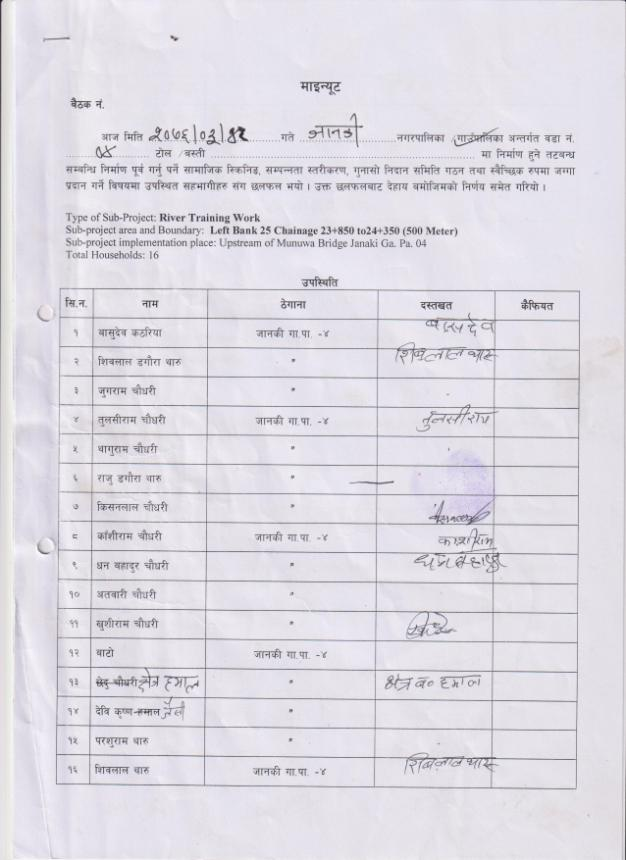 माइन्यूट
बैठक नं.
आज मिति २०७६/०३/१२ गते जानकी नगरपालिका /गाउँपालिका अन्तर्गत वडा नं.
०४ टोल /बस्ती मा निर्माण हुने तटबन्ध
सम्बन्धि निर्माण पूर्व गर्नु पर्ने सामाजिक स्किनिङ, सम्पन्नता स्तरीकरण, गुनासो निदान समिति गठन तथा स्वैच्छिक रुपमा जग्गा
प्रदान गर्ने विषयमा उपस्थित सहभागीहरु संग छलफल भयो । उक्त छलफलबाट देहाय बमोजिमको निर्णय समेत गरियो ।
Type of Sub-Project: River Training Work
Sub-project area and Boundary: Left Bank 25 Chainage 23+850 to24+350 (500 Meter)
Sub-project implementation place: Upstream of Munuwa Bridge Janaki Ga. Pa. 04
Total Households: 16
उपस्थिति
सि.न. नाम ठेगाना दस्तखत कैफियत
१ बासुदेव कठरिया जानकी गा.पा. -४ बासुदेव
२ शिवलाल डगौरा थारु " शिवलाल थारु
३ जुगराम चौधरी "
४ तुलसीराम चौधरी जानकी गा.पा. -४ तुलसीराम
५ थागुराम चौधरी "
६ राजु डगौरा थारु "
७ किसनलाल चौधरी "
८ काँशीराम चौधरी जानकी गा.पा. -४ काशीराम
९ धन बहादुर चौधरी " धन बहादुर
१० अतवारी चौधरी "
११ खुशीराम चौधरी "
१२ बाटो जानकी गा.पा. -४
१३ छेदु चौधरी क्षेत्र हमाल " क्षेत्र ब० हमाल
१४ देवि कृष्ण हमाल जैसी "
१५ परशुराम थारु "
१६ शिवलाल थारु जानकी गा.पा. -४ शिवलाल थारु